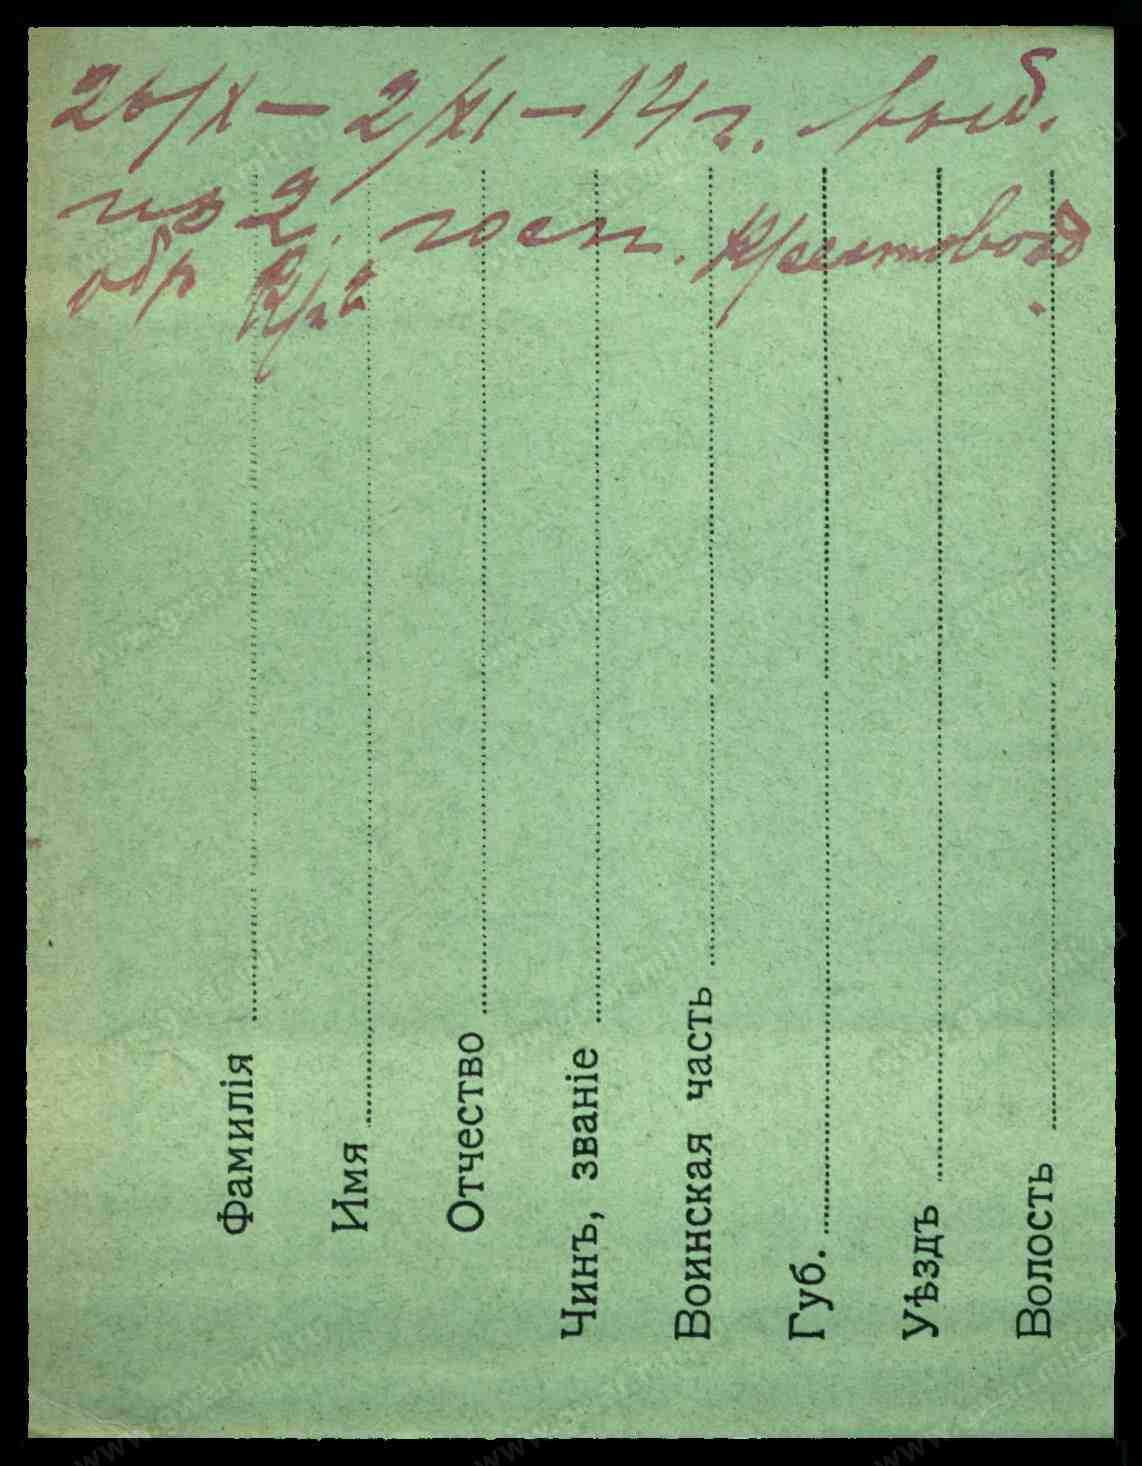 26/X – 2/XI – 14 г. выб.
из 2. госп. Крестовозд
обр Кр.
Фамилія
Имя
Отчество
Чинъ, званіе
Воинская часть
Губ.
Уѣздъ
Волость